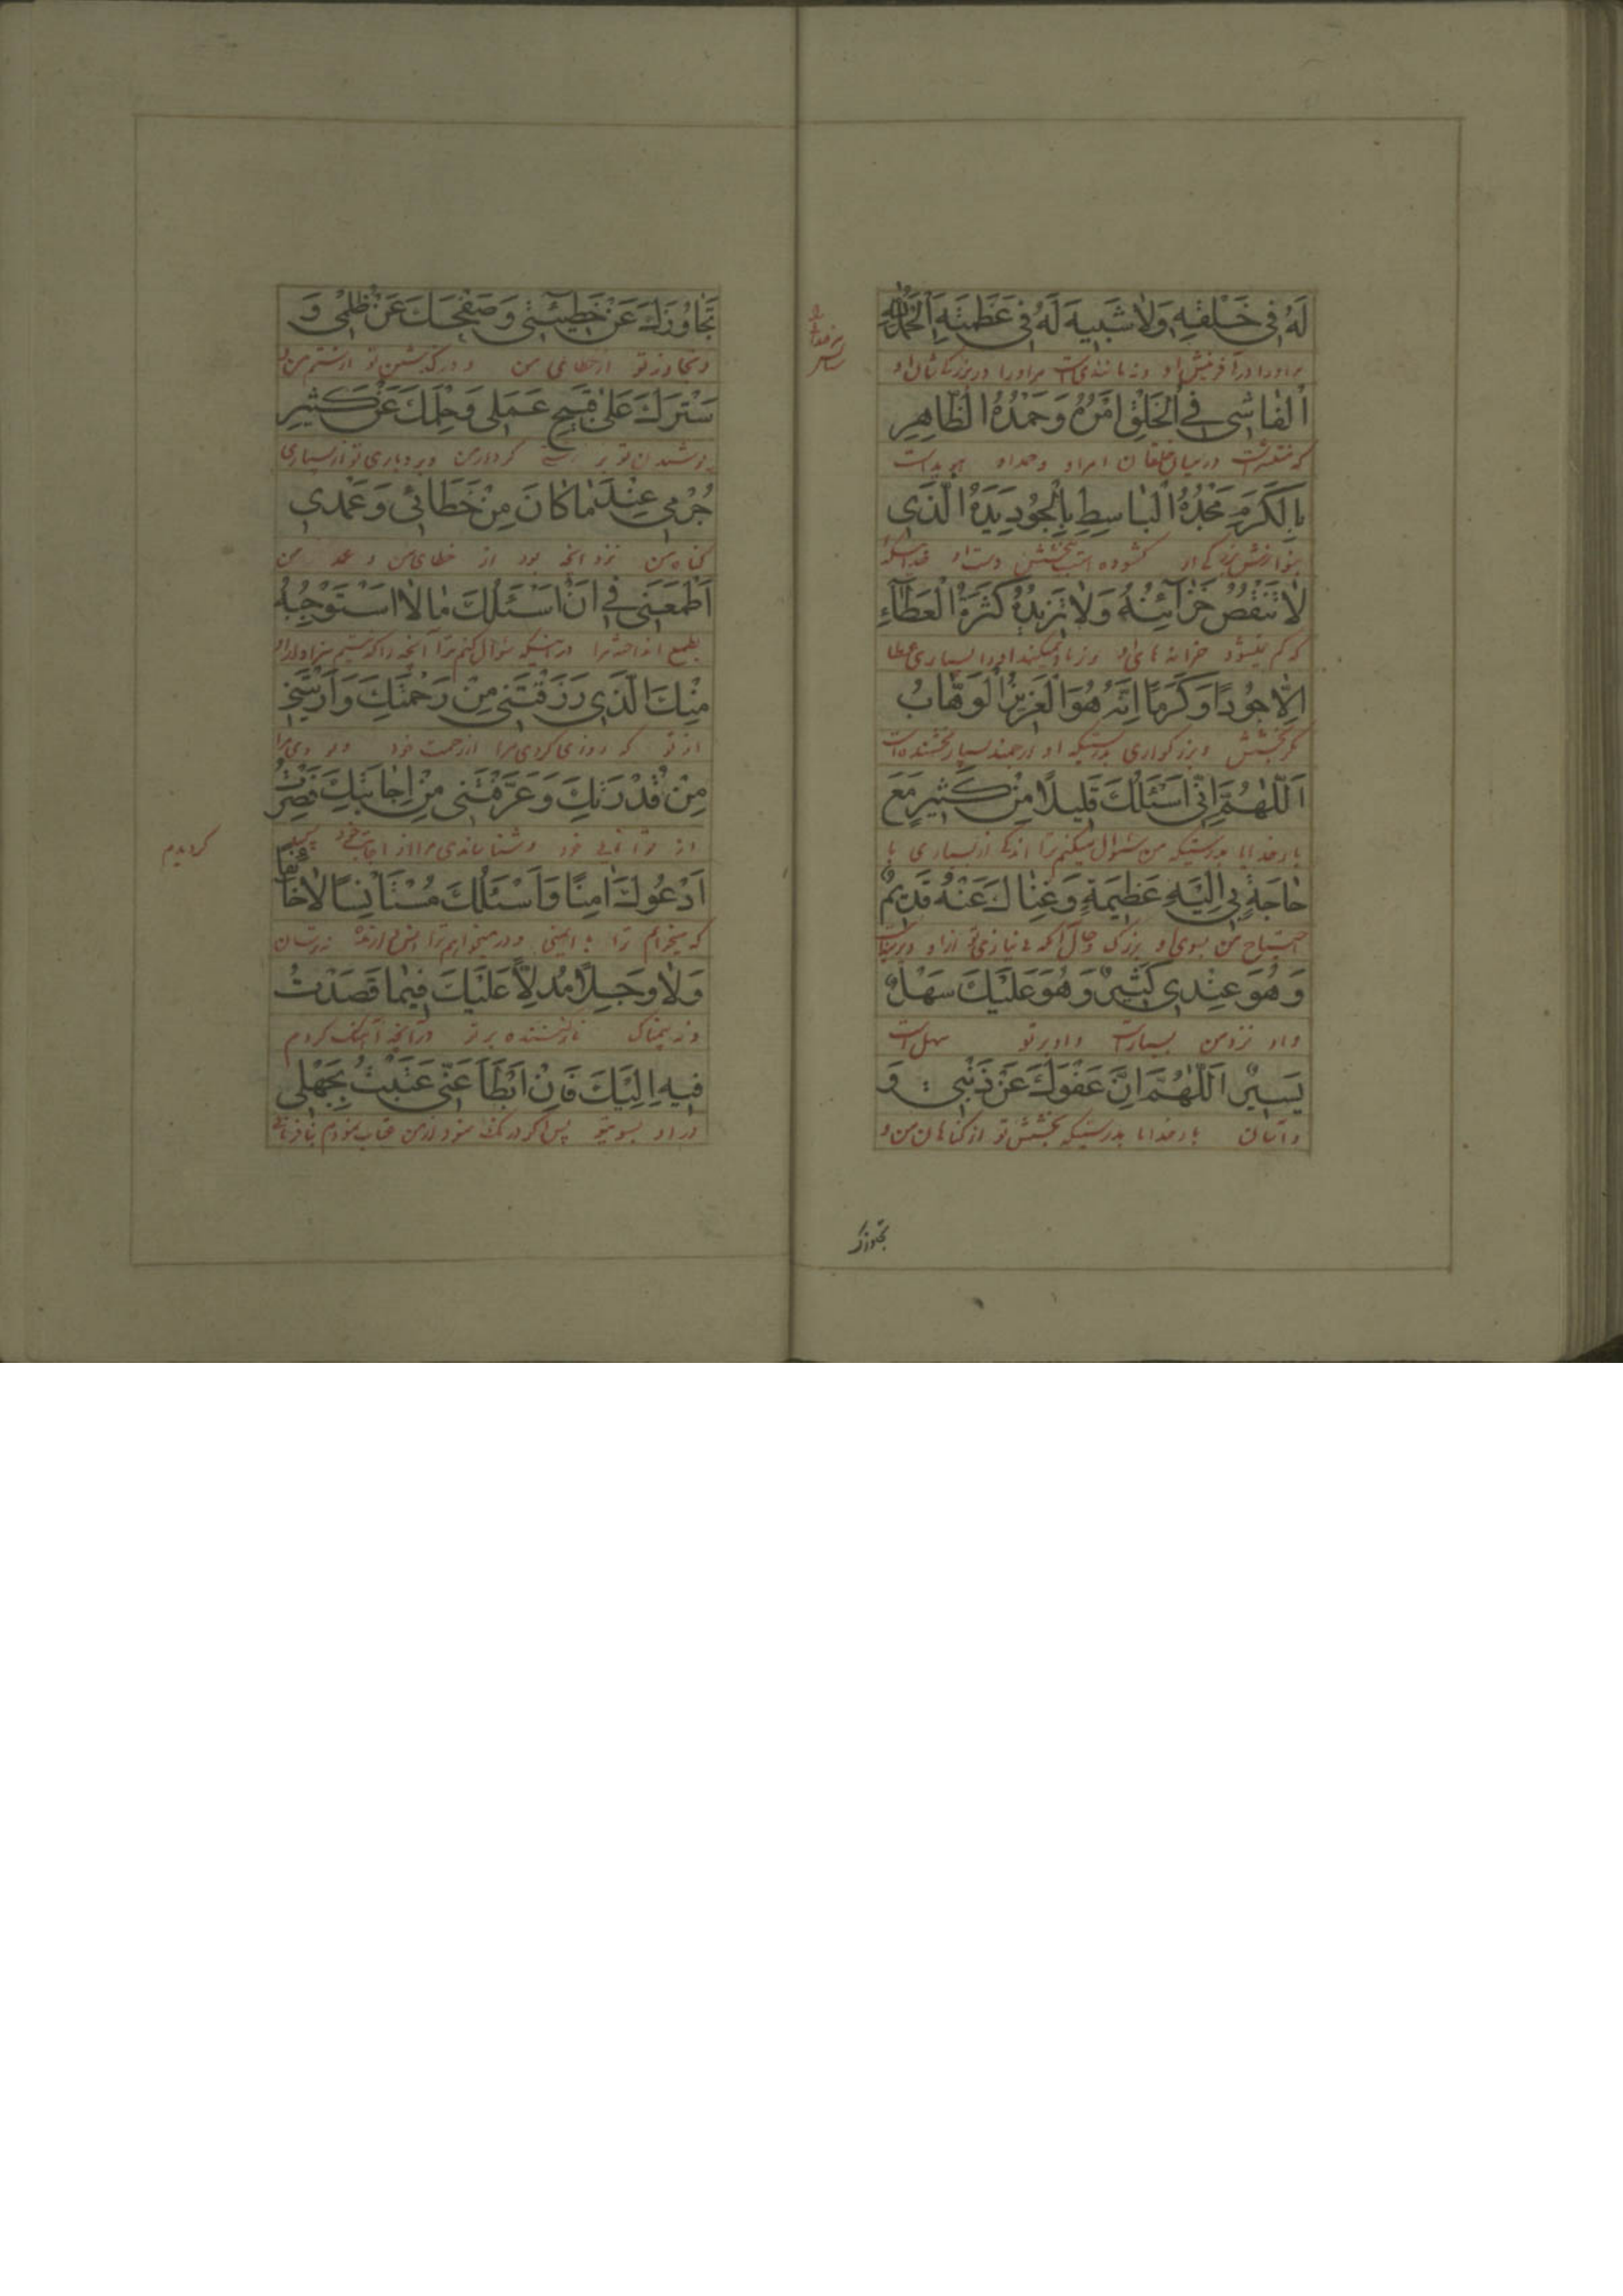 لَهُ فِي خَلْقِهِ وَلَا شَبِيهَ لَهُ فِي عَظَمَتِهِ اَلْحَمْدُ لِلّٰهِ
مراورا در آفرینش او و نه مانندی است مراورا در بزرگی شان او
اَلْفَاشِي فِي الْخَلْقِ اَمْرُهُ وَحَمْدُهُ الظَّاهِرِ
که منتشر است در میان خلقان امر او و حمد او هویداست
بِالْكَرَمِ مَجْدُهُ الْبَاسِطِ بِالْجُودِ يَدَهُ الَّذِي
بنوازش بزرگی او گشوده است ببخشش دست او خدائیکه
لَا تَنْقُصُ خَزَآئِنُهُ وَلَا تَزِيدُهُ كَثْرَةُ الْعَطَآءِ
که کم نمیشود خزانه های او و زیاد نمیکند او را بسیاری عطا
اِلَّا جُودًا وَكَرَمًا اِنَّهُ هُوَ الْعَزِيزُ الْوَهَّابُ
مگر بخشش و بزرگواری بدرستیکه او ارجمند بسیار بخشنده است
اَللّٰهُمَّ اِنِّي اَسْئَلُكَ قَلِيلًا مِنْ كَثِيرٍ مَعَ
بارخدایا بدرستیکه من سئوال میکنم ترا اندکی از بسیاری با
حَاجَةٍ بِي اِلَيْهِ عَظِيمَةٍ وَغِنَاكَ عَنْهُ قَدِيمٌ
احتیاج من بسوی او بزرگ و حال آنکه بی نیازی تو از او دیرینه است
وَهُوَ عِنْدِي كَثِيرٌ وَهُوَ عَلَيْكَ سَهْلٌ
و او نزد من بسیار است و او بر تو سهل است
يَسِيرٌ اَللّٰهُمَّ اِنَّ عَفْوَكَ عَنْ ذَنْبِي وَ
و آسان بارخدایا بدرستیکه بخشش تو از گناهان من و
تجاوزک
تَجَاوُزَكَ عَنْ خَطِيئَتِي وَصَفْحَكَ عَنْ ظُلْمِي وَ
و تجاوز تو از خطای من و درگذشتن تو از ستم من و
سَتْرَكَ عَلَى قَبِيحِ عَمَلِي وَحِلْمَكَ عَنْ كَثِيرِ
پوشیدن تو بر زشتی کردار من و بردباری تو از بسیاری
جُرْمِي عِنْدَ مَا كَانَ مِنْ خَطَائِي وَعَمْدِي
گناه من نزد آنچه بود از خطای من و عمد من
اَطْمَعَنِي فِي اَنْ اَسْئَلَكَ مَا لَا اَسْتَوْجِبُهُ
بطمع انداخت مرا در اینکه سئوال کنم ترا آنچه را که نیستم سزاوار او
مِنْكَ الَّذِي رَزَقْتَنِي مِنْ رَحْمَتِكَ وَاَرَيْتَنِي
از تو که روزی کردی مرا از رحمت خود و نمودی مرا
مِنْ قُدْرَتِكَ وَعَرَّفْتَنِي مِنْ اِجَابَتِكَ فَصِرْتُ
از توانائی خود و شناساندی مرا از اجابت خود پس
گردیدم
اَدْعُوكَ اٰمِنًا وَاَسْئَلُكَ مُسْتَأْنِسًا لَا خَائِفًا
که میخوانم ترا با ایمنی و در میخواهم ترا انس آرنده نه ترسان
وَلَا وَجِلًا مُدِلًّا عَلَيْكَ فِيمَا قَصَدْتُ
و نه بیمناک نازکننده بر تو در آنچه آهنگ کردم
فِيهِ اِلَيْكَ فَاِنْ اَبْطَأَ عَنِّي عَتَبْتُ بِجَهْلِي
در او بسوی تو پس اگر درنگ نمود از من عتاب نمودم بنادانی